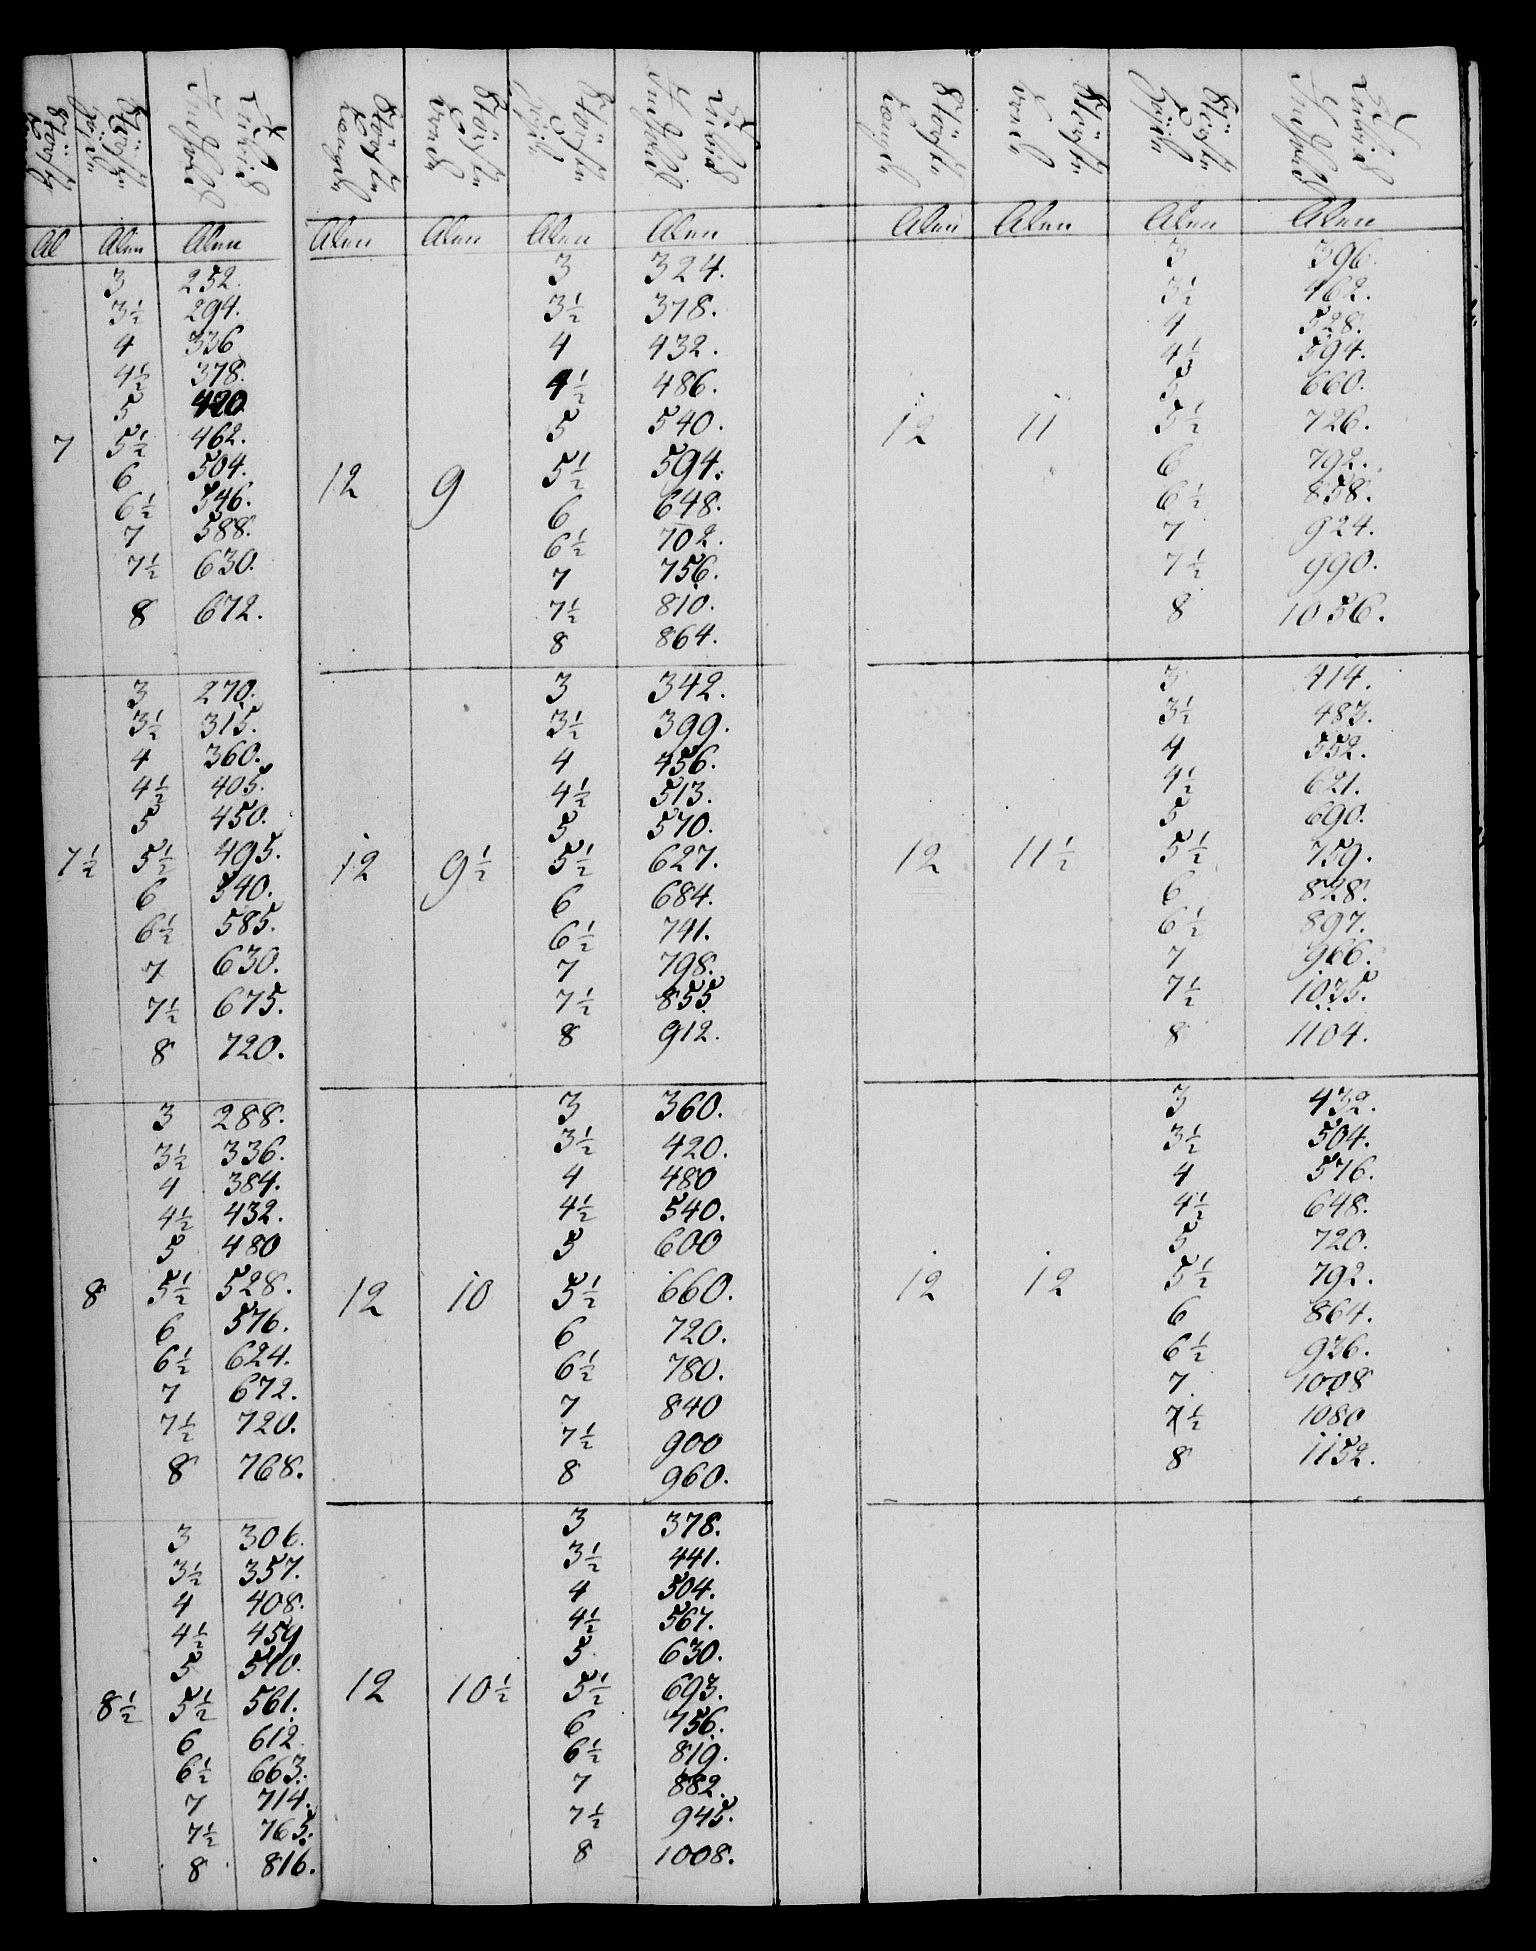 Al Alen Alen
3 252.
3½ 294.
4 336
4½ 378.
5 420
7 5½ 462.
6 504.
6½ 546.
7 588.
7½ 630.
8 672.
3 270.
3½ 315.
4 360.
4½ 405.
5 450.
7½ 5½ 495.
6 540.
6½ 585.
7 630.
7½ 675.
8 720.
3 288.
3½ 336.
4 384.
4½ 432.
5 480
8 5½ 528.
6 576.
6½ 624.
7 672.
7½ 720.
8 768.
3 306.
3½ 357.
4 408.
4½ 459
5 510.
8½ 5½ 561.
6 612.
6½ 663.
7 714.
7½ 765.
8 816.
Alen Alen Alen Alen
3 324.
3½ 378.
4 432.
4½ 486.
5 540.
12 9 5½ 594.
6 648.
6½ 702.
7 756.
7½ 810.
8 864.
3 342.
3½ 399.
4 456.
4½ 513.
5 570.
12 9½ 5½ 627.
6 684.
6½ 741.
7 798.
7½ 855
8 912.
3 360.
3½ 420.
4 480
4½ 540.
5 600
12 10 5½ 660.
6 720.
6½ 780.
7 840
7½ 900
8 960.
3 378.
3½ 441.
4 504.
4½ 567.
5 630.
12 10½ 5½ 693.
6 756.
6½ 819.
7 882.
7½ 945.
8 1008.
Alen Alen Alen Alen
3 396.
3½ 462.
4 528.
4½ 594.
5 660.
12 11 5½ 726.
6 792.
6½ 858.
7 924.
7½ 990.
8 1056.
3 414.
3½ 483.
4 552.
4½ 621.
5 690.
12 11½ 5½ 759.
6 828.
6½ 897.
7 966.
7½ 1035.
8 1104.
3 432.
3½ 504.
4 576.
4½ 648.
5 720.
12 12 5½ 792.
6 864.
6½ 936.
7 1008
7½ 1080
8 1152.